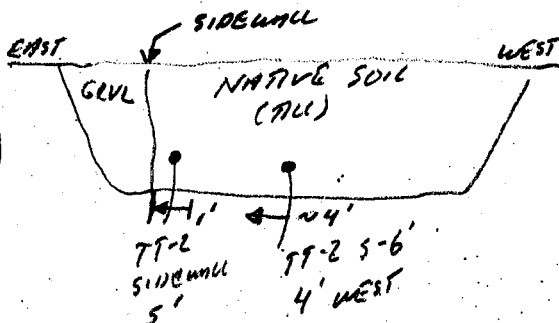 SIDEWALL
EAST
WEST
GRVL
NATIVE SOIL
(TILL)
1'
~4'
TT-2
SIDEWALL
5'
TT-2 5-6'
4' WEST